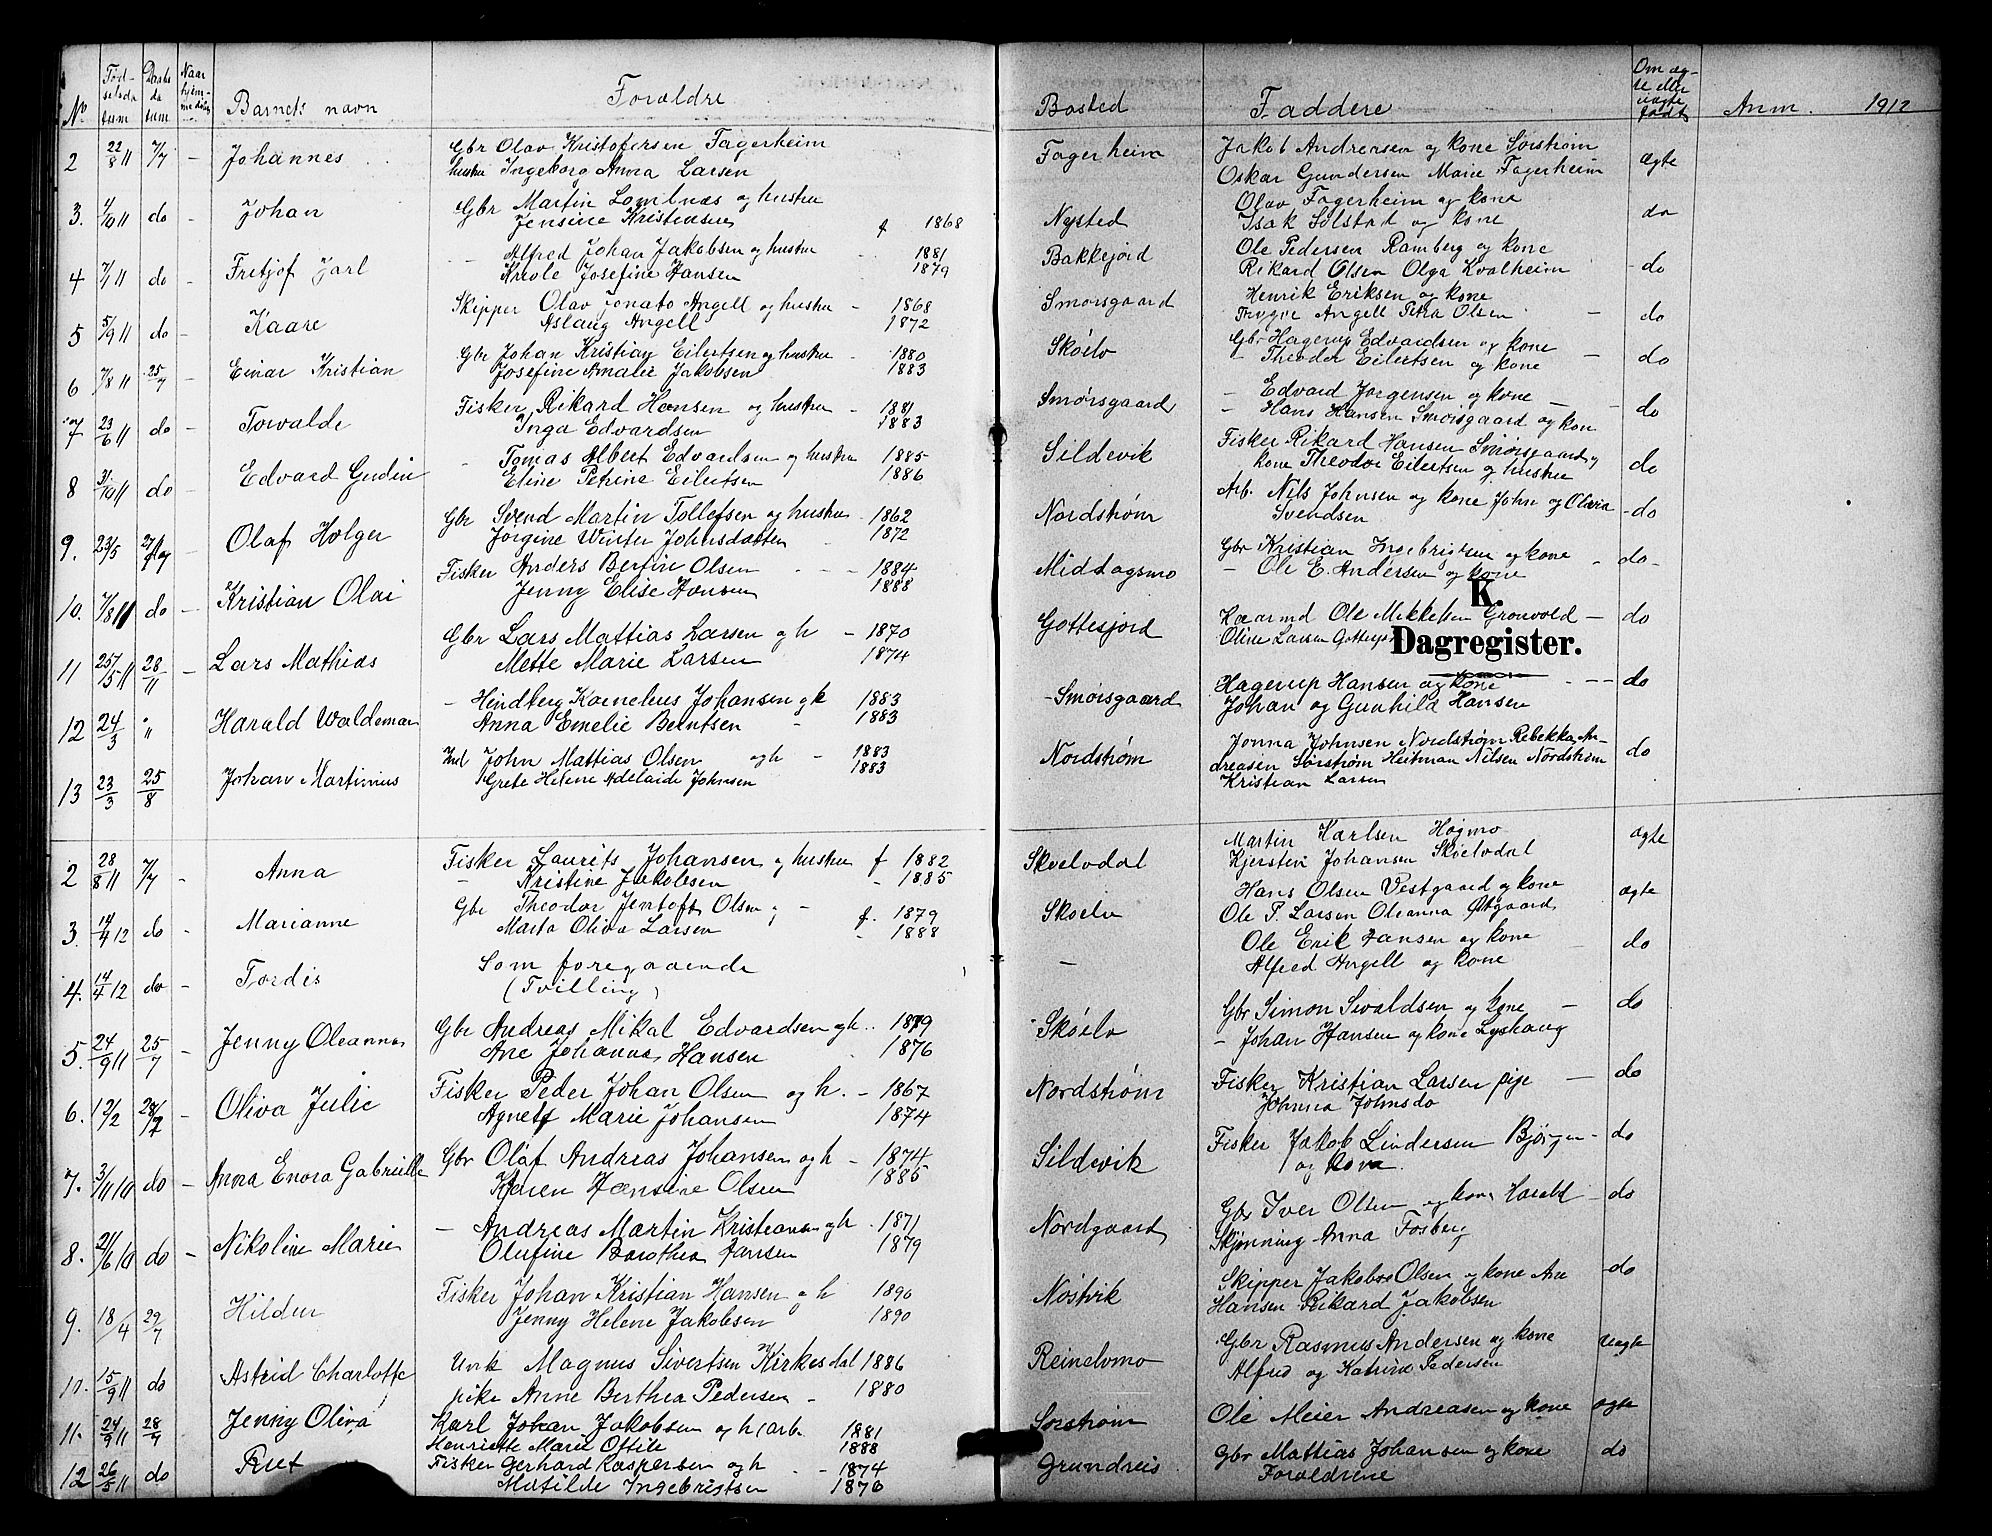 No Fødselsdatum Daabsdatum Naar hjemmedøbt Barnets navn Forældre Bosted Faddere Om ægte eller uægte født Anm. 1912
2 22/8 11 7/7 - Johannes Gbr Olav Kristofersen Fagerheim Fagerheim Jakob Andreasen og kone Sørstrøm ægte
hustru Ingeborg Anna Larsen Oskar Gundersen Marie Fagerheim
3. 4/10 11 do - Johan Gbr Martin Lombnæs og hustru Nysted Olav Fagerheim og kone do
Jensine Kristensen f 1868 Isak Solstad og kone
4 7/1 11 do - Fretjof Jarl Alfred Johan Jakobsen og hustru 1881 Bakkejord Ole Pedersen Ramberg og kone do
Kreole Josefine Hansen 1879 Rikard Olsen Olga Kvalheim
5 5/9 11 do - Kaare Skipper Olav Jonato Angell og hustru - 1868 Smørsgaard Henrik Eriksen og kone do
Aslaug Angell 1872 Trygve Angell Petra Olsen
6 7/8 11 25/7 - Einar Kristian Gbr Johan Kristian Eilertsen og hustru - 1880 Skøelv Gbr Hagerup Edvardsen og kone do
Josefine Amalie Jakobsen 1883 - Theodor Eilertsen og kone
7 23/6 11 do - Torvalde Fisker Rikard Hansen og hustru - 1881 Smørsgaard - Edvard Jørgensen og kone do
Inga Edvardsen 1883 - Hans Hansen Smørsgaard og kon
8 31/10 11 do - Edvard Gudin - Tomas Albert Edvardsen og hustru 1885 Sildevik Fisker Rikard Hansen Smørsgaard og do
Eline Petrine Eilertsen 1886 kone Theodor Eilertsen og hustru
9. 23/5 - Olaf Holger Gbr Svend Martin Tollefsen og hustru - 1862 Nordstrøm Arb. Nils Johnsen og kone John og Olava do
Jørgine Winter Johnsdatter 1872 Svendsen
10. 7/8 11 do - Kristian Olai Fisker Anders Bertin Olsen - 1884 Middagsmo Gbr Kristian Ingebrigtsen og kone do
Jenny Elise Hansen 1888 - Ole E. Andersen og kone
K.
11 25/5 11 28/11 - Lars Mathias Gbr Lars Mattias Larsen og h - 1870 Gottesjord Haarmd Ole Mikkelsen Gronvold - do
Mette Marie Larsen 1874 Oline Larsen
Dagregister.
12 24/3 " Harald Waldemar - Hindberg Kornelius Johansen og h 1883 - Smørsgaard Hagerup Hansen og kone do
Anna Emelie Berntsen - 1883 Johan og Gunhild Hansen
13 23/3 25/8 Johan Martinius Ind John Mattias Olsen og h - 1883 Nordstrøm Jonna Johnsen Nordstrøm Rebekka An- do
Grete Helene Adelaide Johnsen 1883 dreasen Sørstrøm Heitman Nilsen Nordstrøm
Kristian Larsen
2 28/8 11 7/7 - Anna Fisker Laurits Johansen og hustru f 1882 Skoelvdal Martin Karlsen Høgmo ægte
- Kristine Jakobsen - 1885 Kjersten Johansen Skoelvdal
3. 14/4 12 do - Marianne Gbr Theodor Jentoft Olsen og - f. 1879 Skoelv Hans Olsen Vestgaard og kone ægte
Marta Oliva Larsen - 1888 Ole P. Larsen Oleanna Østgaard
4. 14/4 12 do - Tordis Som foregaaende - Ole Erik Hansen og kone do
(Tvilling) Alfred Angell og kone
5. 24/9 11 25/7 - Jenny Oleanna Gbr Andreas Mikal Edvardsen og h.. 1879 - Skøelv Gbr Simon Sivaldsen og kone - do
Ane Johanna Hansen 1876 - Johan Hansen og kone Lyshaug
6. 12/2 28/7 Oliva Julie Fisker Peder Johan Olsen og h. - 1867 Nordstrøm Fisker Kristian Larsen pige - do
Agnete Marie Johansen 1874 Johnna Johnsdo
7. 3/11 10 do - Anna Enora Gabrielle Gbr Olaf Andreas Johansen og h - 1874 Sildevik Fisker Jakob Lindersen - do
Karen Hansine Olsen 1885 og kone.
8. 21/6 10 do - Nikoline Marie - Andreas Martin Kristiansen og h . 1871 Nordgaard Gbr Iver Olsen og kone Harald - do
Olufine Dorothea Jansen 1879 Skjønning Anna Fosberg
9. 18/4 29/7 Hildur Fisker Johan Kristian Hansen og h 1890 Nøstvik Skipper Jakob Olsen og kone Ane do
Jenny Helene Jakobsen 1890 Hansen Rikard Jakobsen
10. 15/9 11 do Astrid Charlotte Unk Magnus Sivertsen Kirkesdal 1886 Reinelvmo Gbr Rasmus Andersen og kone uægte
pike Anne Berthea Pedersen - 1880 Alfred og Katrine Pedersen
11. 24/9 11 28/9 Jenny Oliva Karl Johan Jakobsen og h (arb. 1881 Sørstrøm Ole Meier Andreasen og kone ægte
Henriette Marie Ottile 1888
12 26/5 11 do Rut Fisker Gerhard Kaspersen og h - 1874 Grundreis Gbr Mattias Johansen og kone do
Matilde Ingebrigtsen 1876 Forældrene